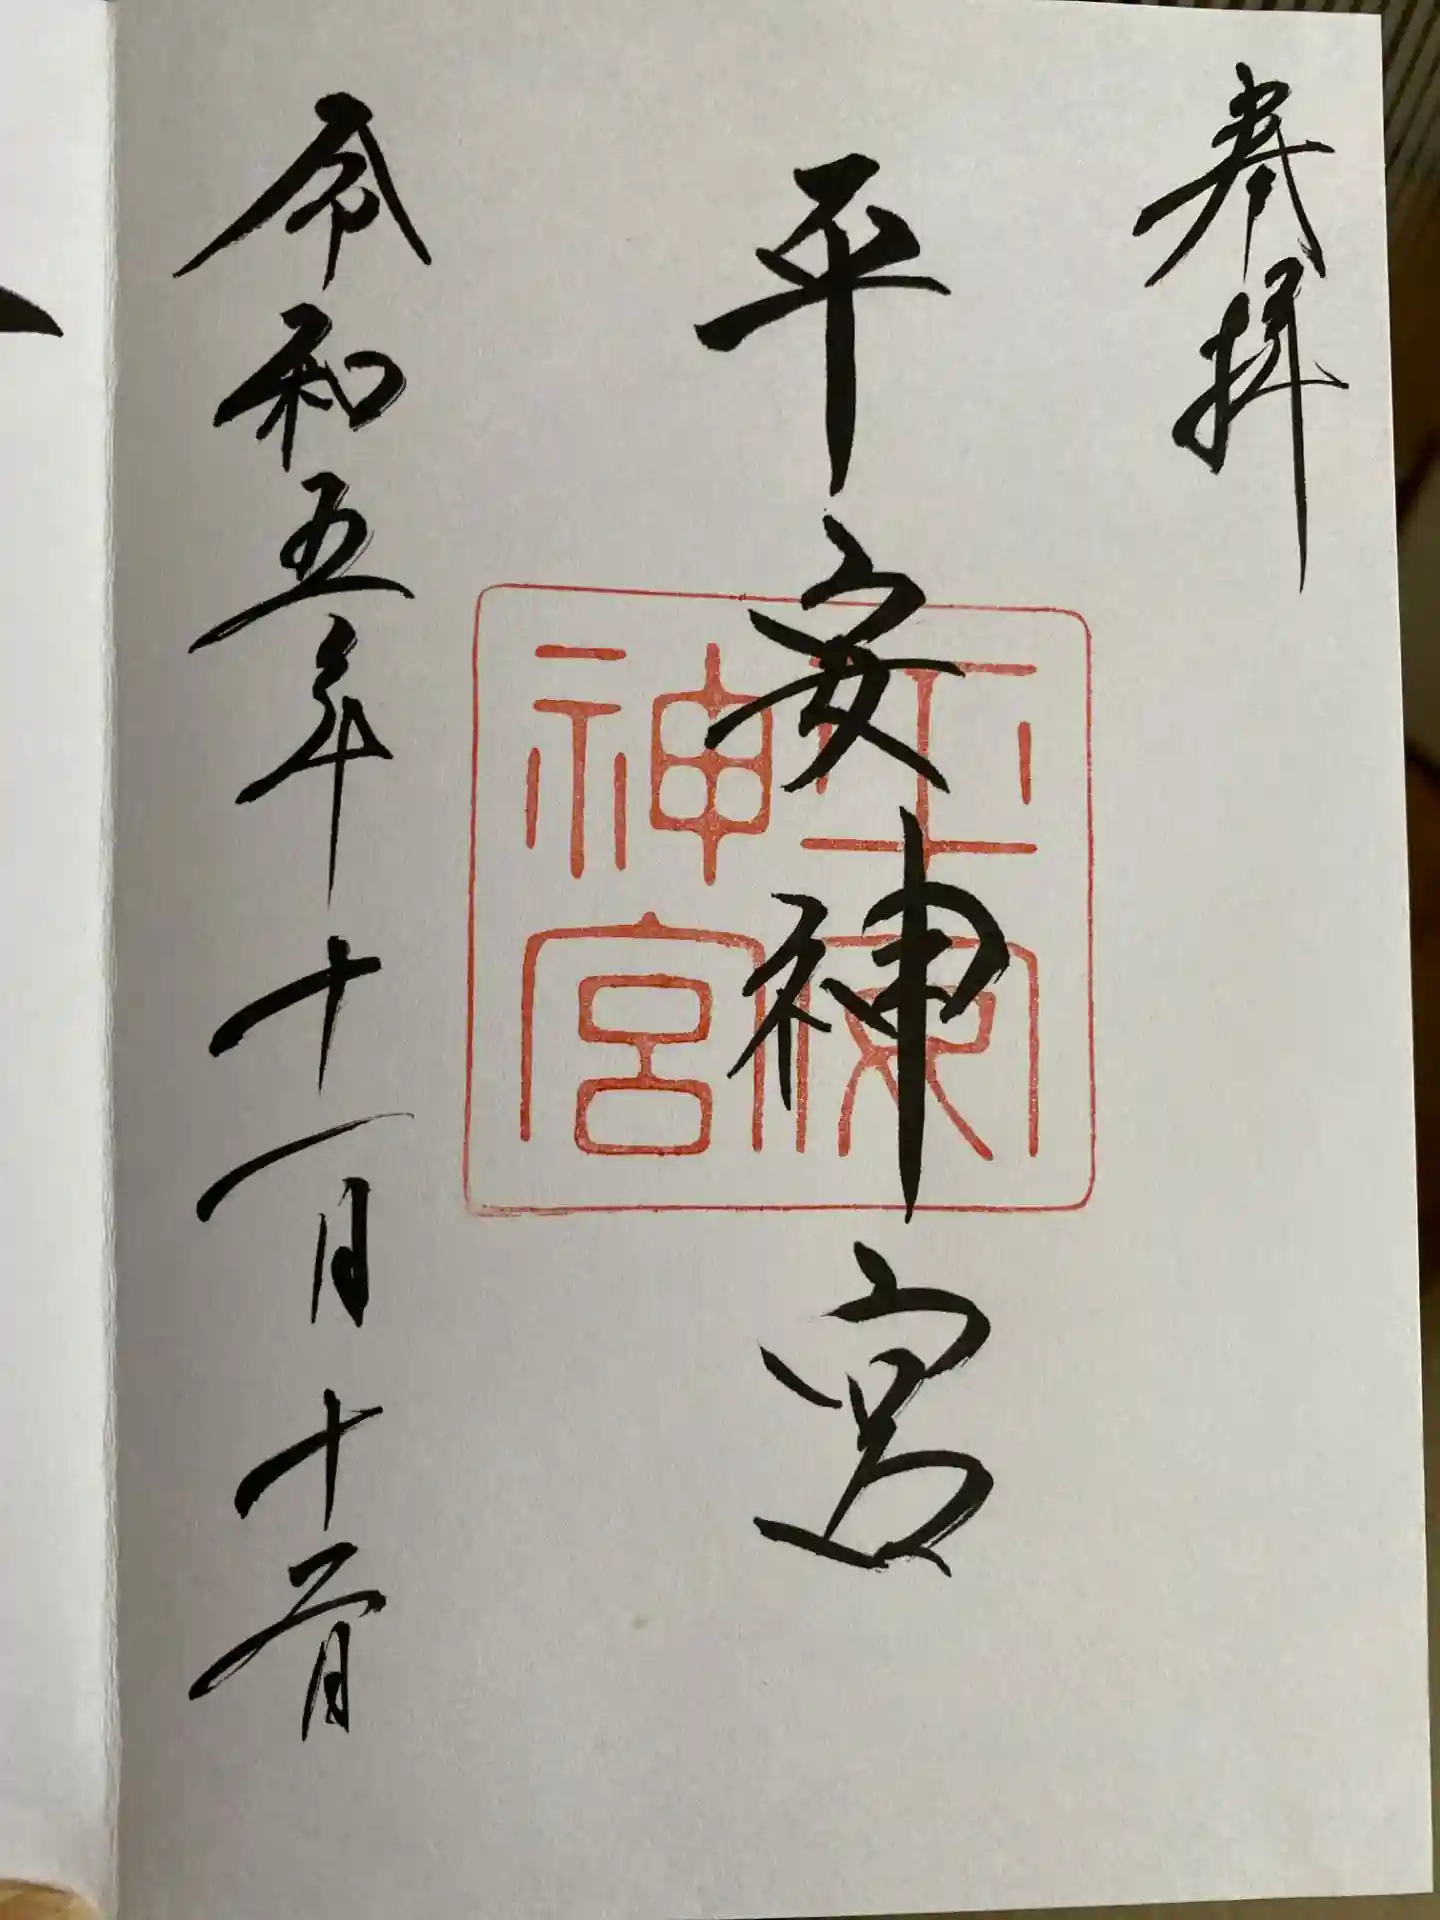 奉拝
平安神宮
令和五年十一月十二日
平安神宮